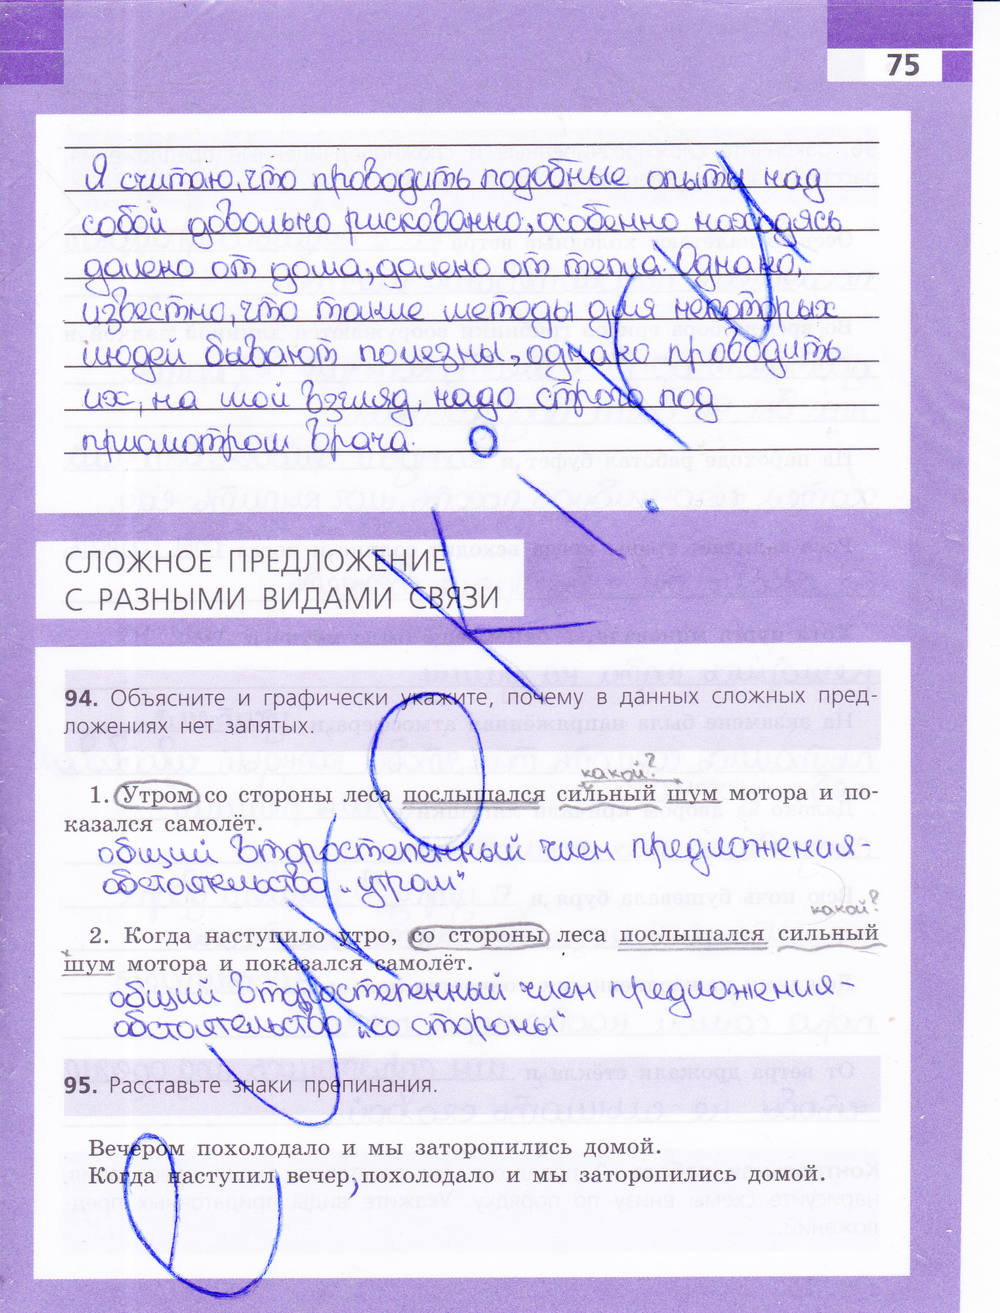 75
Я считаю, что проводить подобные опыты над
собой довольно рискованно, особенно находясь
далеко от дома, далеко от тепла. Однако,
известно, что такие методы для некоторых
людей бывают полезны, однако проводить
их, на мой взгляд, надо строго под
присмотром врача.
СЛОЖНОЕ ПРЕДЛОЖЕНИЕ
С РАЗНЫМИ ВИДАМИ СВЯЗИ
94. Объясните и графически укажите, почему в данных сложных пред-
ложениях нет запятых.
какой?
1. Утром со стороны леса послышался сильный шум мотора и по-
казался самолёт.
общий второстепенный член предложения-
обстоятельство „утром“
какой?
2. Когда наступило утро, со стороны леса послышался сильный
шум мотора и показался самолёт.
общий второстепенный член предложения-
обстоятельство „со стороны“
95. Расставьте знаки препинания.
Вечером похолодало и мы заторопились домой.
Когда наступил вечер, похолодало и мы заторопились домой.